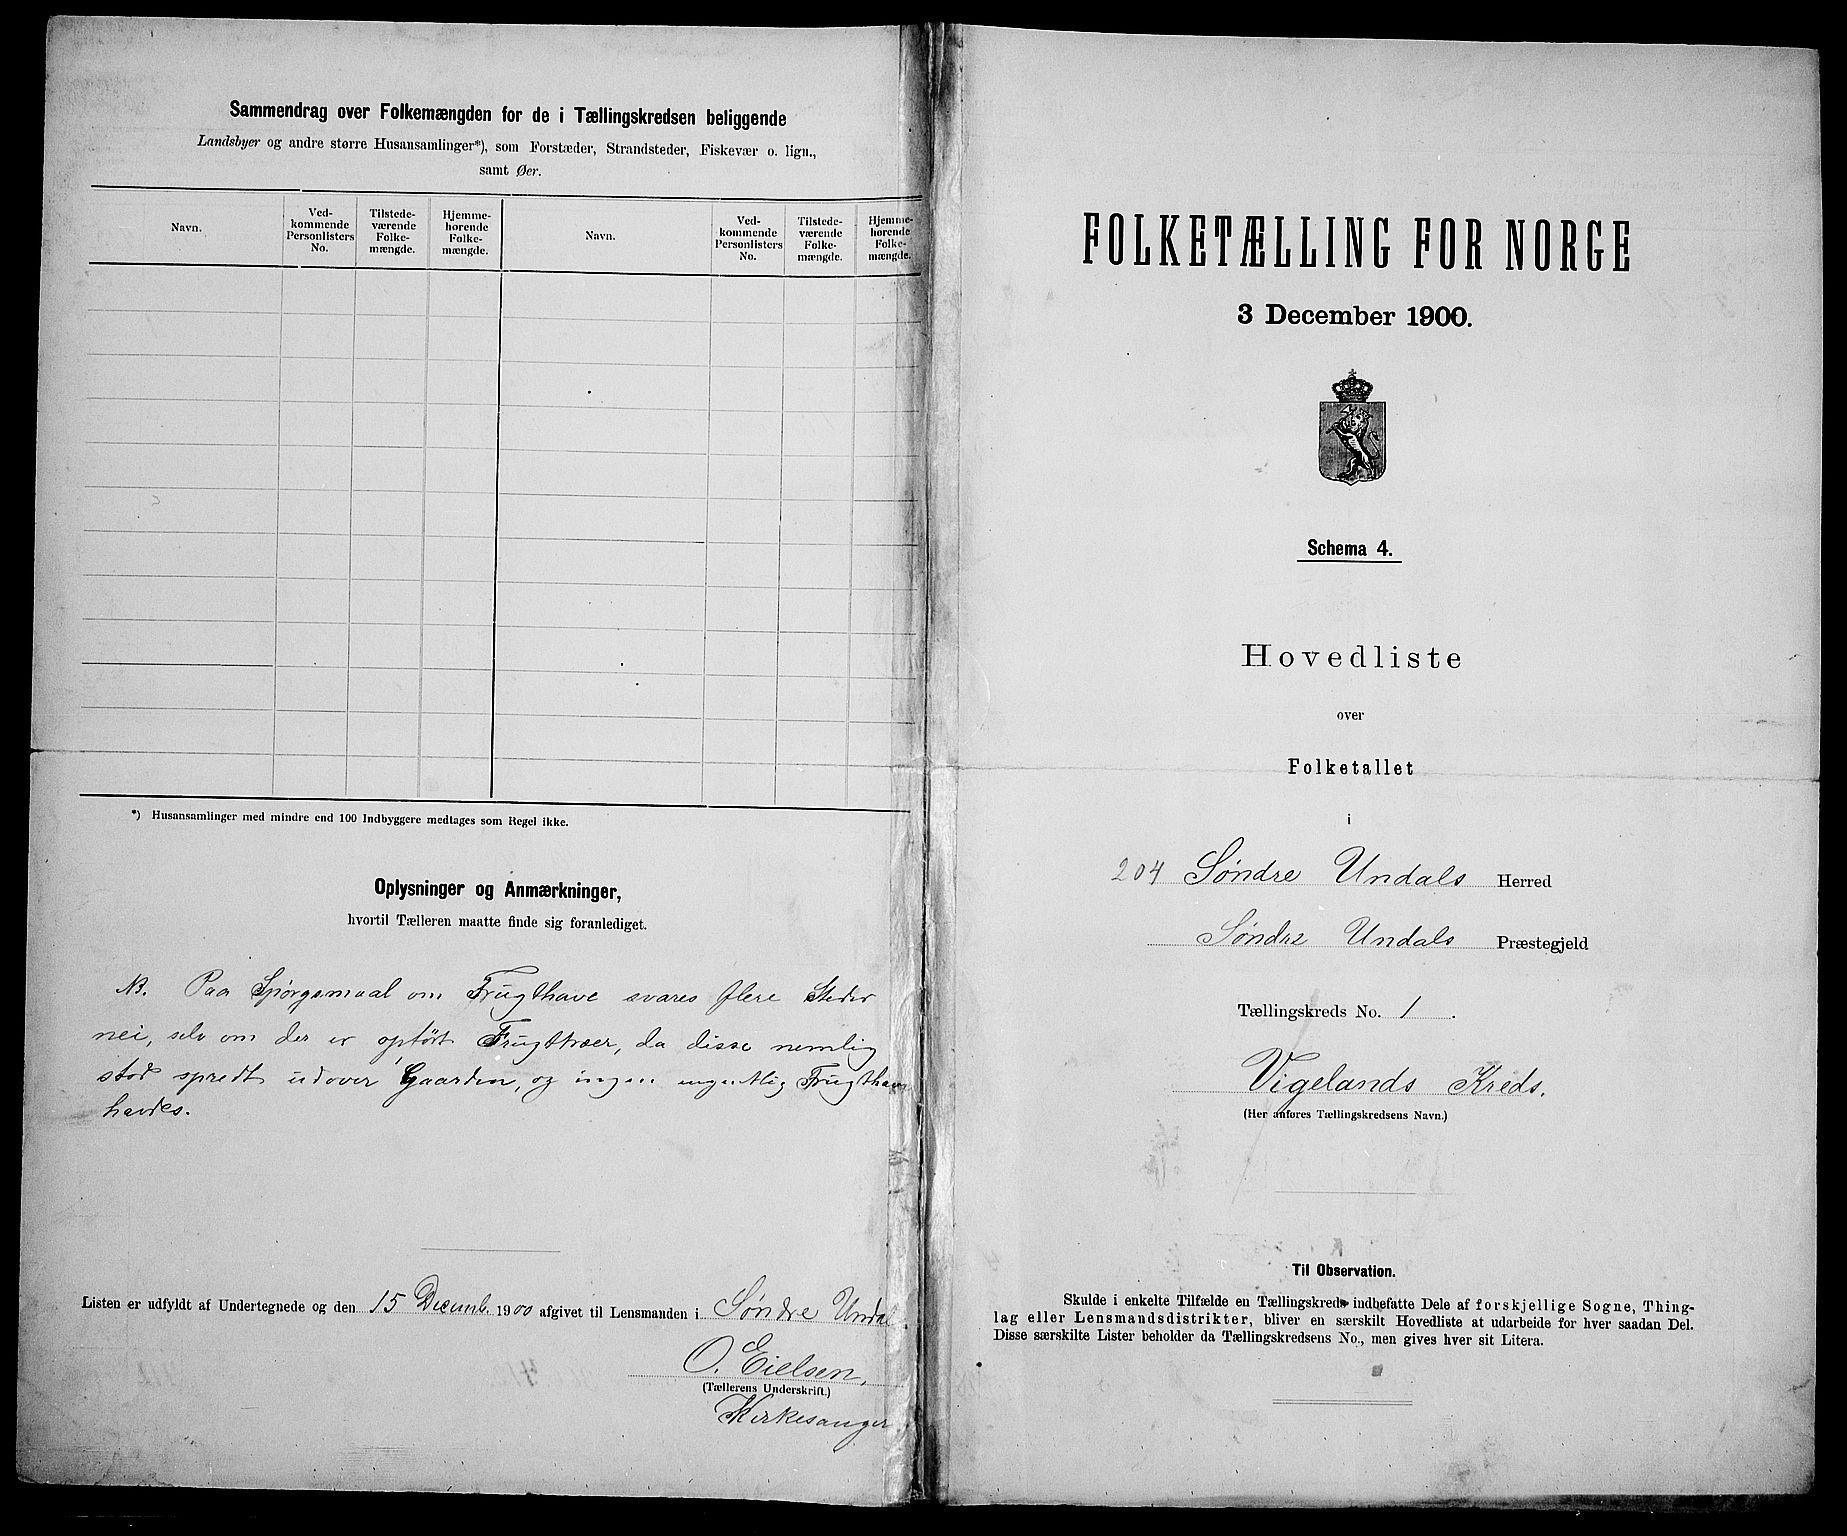 Sammendrag over Folkemængden for de i Tællingskredsen beliggende
Landsbyer og andre større Husansamlinger*), som Forstæder, Strandsteder, Fiskevær o. lign.,
samt Øer.
Navn.
Ved-
kommende
Personlisters
No.
Tilstede-
værende
Folke-
mængde.
Hjemme-
hørende
Folke-
mængde.
Navn.
Ved-
kommende
Personlisters
No.
Tilstede-
værende
Folke-
mængde.
Hjemme-
hørende
Folke-
mængde.
*) Husansamlinger med mindre end 100 Indbyggere medtages som Regel ikke.
Oplysninger og Anmærkninger,
hvortil Tælleren maatte finde sig foranlediget.
NB. Paa Spörgsmaal om Frugthave svares flere Steder
nei, selv om der er opført Frugttræer, da disse nemlig
stod spredt udover Gaarden, og ingen egentlig Frugthave
havdes.
Listen er udfyldt af Undertegnede og den 15 Decemb. 1900 afgivet til Lensmanden i Søndre Undal
O. Eielsen,
(Tællerens Underskrift.)
Kirkesanger
FOLKETÆLLING FOR NORGE
3 December 1900.
Schema 4.
Hovedliste
over
Folketallet
i
204 Søndre Undals Herred
Søndre Undals Præstegjeld
Tællingskreds No. 1.
Vigelands Kreds.
(Her anføres Tællingskredsens Navn.)
Til Observation.
Skulde i enkelte Tilfælde en Tællingskreds indbefatte Dele af forskjellige Sogne, Thing-
lag eller Lensmandsdistrikter, bliver en særskilt Hovedliste at udarbeide for hver saadan Del.
Disse særskilte Lister beholder da Tællingskredsens No., men gives hver sit Litera.